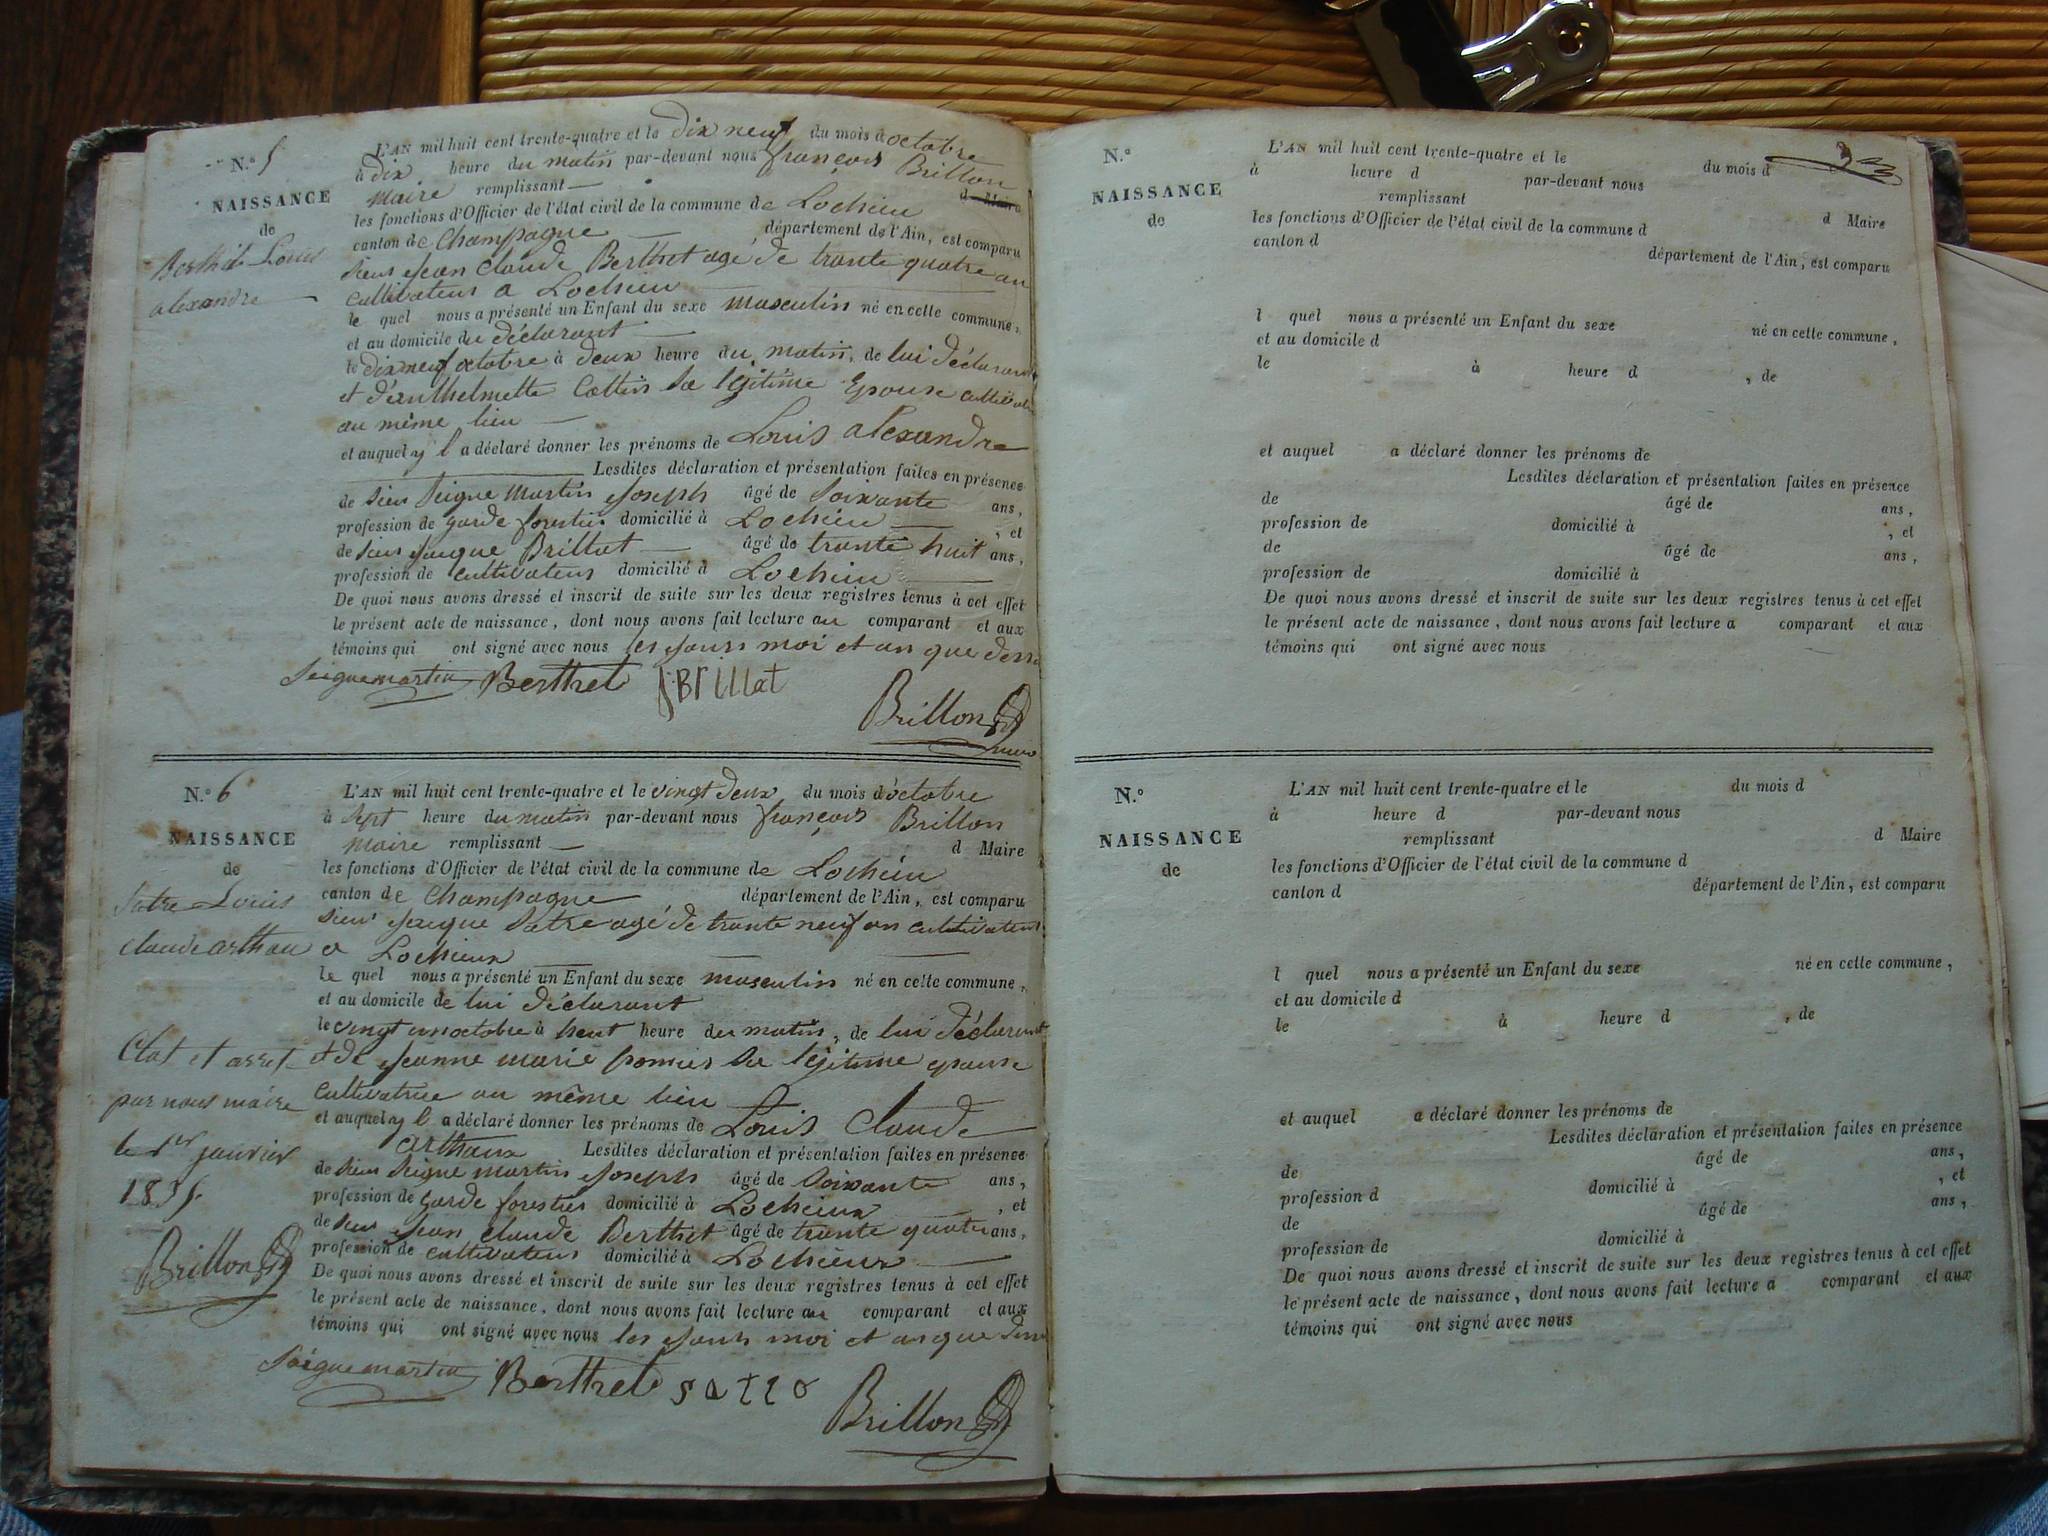 N.° 5
NAISSANCE
de
Berthet Louis
alexandre
L'AN mil huit cent trente-quatre et le dix neuf du mois d octobre
à dix heure du matin par-devant nous françois Brillon
maire remplissant d Maire
les fonctions d'Officier de l'état civil de la commune de Lochieu
canton de Champagne département de l'Ain, est comparu
sieur Jean Claude Berthet agé de trante quatre an
cultivateur a Lochieu
le quel nous a présenté un Enfant du sexe masculin né en cette commune,
et au domicile du déclarant
le dix neuf octobre à deux heure du matin, de lui déclarant
et d'anthelmette Cottin sa légitime Epouse
au même lieu
et auquel y l a déclaré donner les prénoms de Louis alexandre
Lesdites déclaration et présentation faites en présence
de sieur Seigne Martin Joseph âgé de Soixante ans,
profession de garde forestier domicilié à Lochieu , et
de sieur Jacque Brillat âgé de trante huit ans,
profession de cultivateur domicilié à Lochieu
De quoi nous avons dressé et inscrit de suite sur les deux registres tenus à cet effet
le présent acte de naissance, dont nous avons fait lecture au comparant et aux
témoins qui ont signé avec nous les jours moi et an que dessu
Seignemartin Berthet JBrillat
Brillon
N.° 6
NAISSANCE
de
Satre Louis
Claude arthau
L'AN mil huit cent trente-quatre et le vingt deux du mois d'octobre
à sept heure du matin par-devant nous françois Brillon
maire remplissant d Maire
les fonctions d'Officier de l'état civil de la commune de Lochieu
canton de Champagne département de l'Ain, est comparu
sieur Jacque Satre agé de trante neuf an cultivateur
a Lochieux
le quel nous a présenté un Enfant du sexe masculin né en cette commune,
et au domicile de lui déclarant
le vingt un octobre à heure du matin, de lui déclarant
et de Jeanne marie sa légitime epouse
cultivatrice au même lieu
et auquel y l a déclaré donner les prénoms de Louis Claude
arthaux Lesdites déclaration et présentation faites en présence
de sieur Seigne martin Joseph âgé de Soixante ans,
profession de garde forestier domicilié à Lochieux , et
de sieur Jean Claude Berthet âgé de trante quatre ans,
profession de cultivateur domicilié à Lochieux
De quoi nous avons dressé et inscrit de suite sur les deux registres tenus à cet effet
le présent acte de naissance, dont nous avons fait lecture au comparant et aux
témoins qui ont signé avec nous les jours moi et an que dessu
Clot et arret
par nous maire
le 1er janvier
1835
Brillon
Seignemartin Berthet satre
Brillon
N.°
NAISSANCE
de
L'AN mil huit cent trente-quatre et le du mois d
à heure d par-devant nous
remplissant d Maire
les fonctions d'Officier de l'état civil de la commune d
canton d département de l'Ain, est comparu
l quel nous a présenté un Enfant du sexe né en cette commune,
et au domicile d
le à heure d , de
et auquel a déclaré donner les prénoms de
Lesdites déclaration et présentation faites en présence
de âgé de ans,
profession de domicilié à , et
de âgé de ans,
profession de domicilié à
De quoi nous avons dressé et inscrit de suite sur les deux registres tenus à cet effet
le présent acte de naissance, dont nous avons fait lecture a comparant et aux
témoins qui ont signé avec nous
N.°
NAISSANCE
de
L'AN mil huit cent trente-quatre et le du mois d
à heure d par-devant nous
remplissant d Maire
les fonctions d'Officier de l'état civil de la commune d
canton d département de l'Ain, est comparu
l quel nous a présenté un Enfant du sexe né en cette commune,
et au domicile d
le à heure d , de
et auquel a déclaré donner les prénoms de
Lesdites déclaration et présentation faites en présence
de âgé de ans,
profession d domicilié à , et
de âgé de ans,
profession de domicilié à
De quoi nous avons dressé et inscrit de suite sur les deux registres tenus à cet effet
le présent acte de naissance, dont nous avons fait lecture a comparant et aux
témoins qui ont signé avec nous